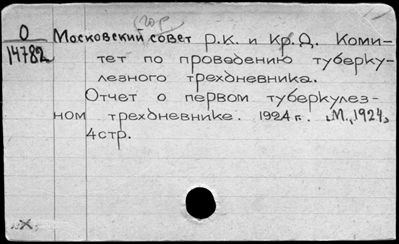 (гор.
О Московский совет р.К. и Кр.Д. Коми-
14782 тет по проведению туберку-
лезного трехдневника.
Отчет о первом туберкулез-
ном трехдневнике. 1924 г. „М., 1924,
4стр.